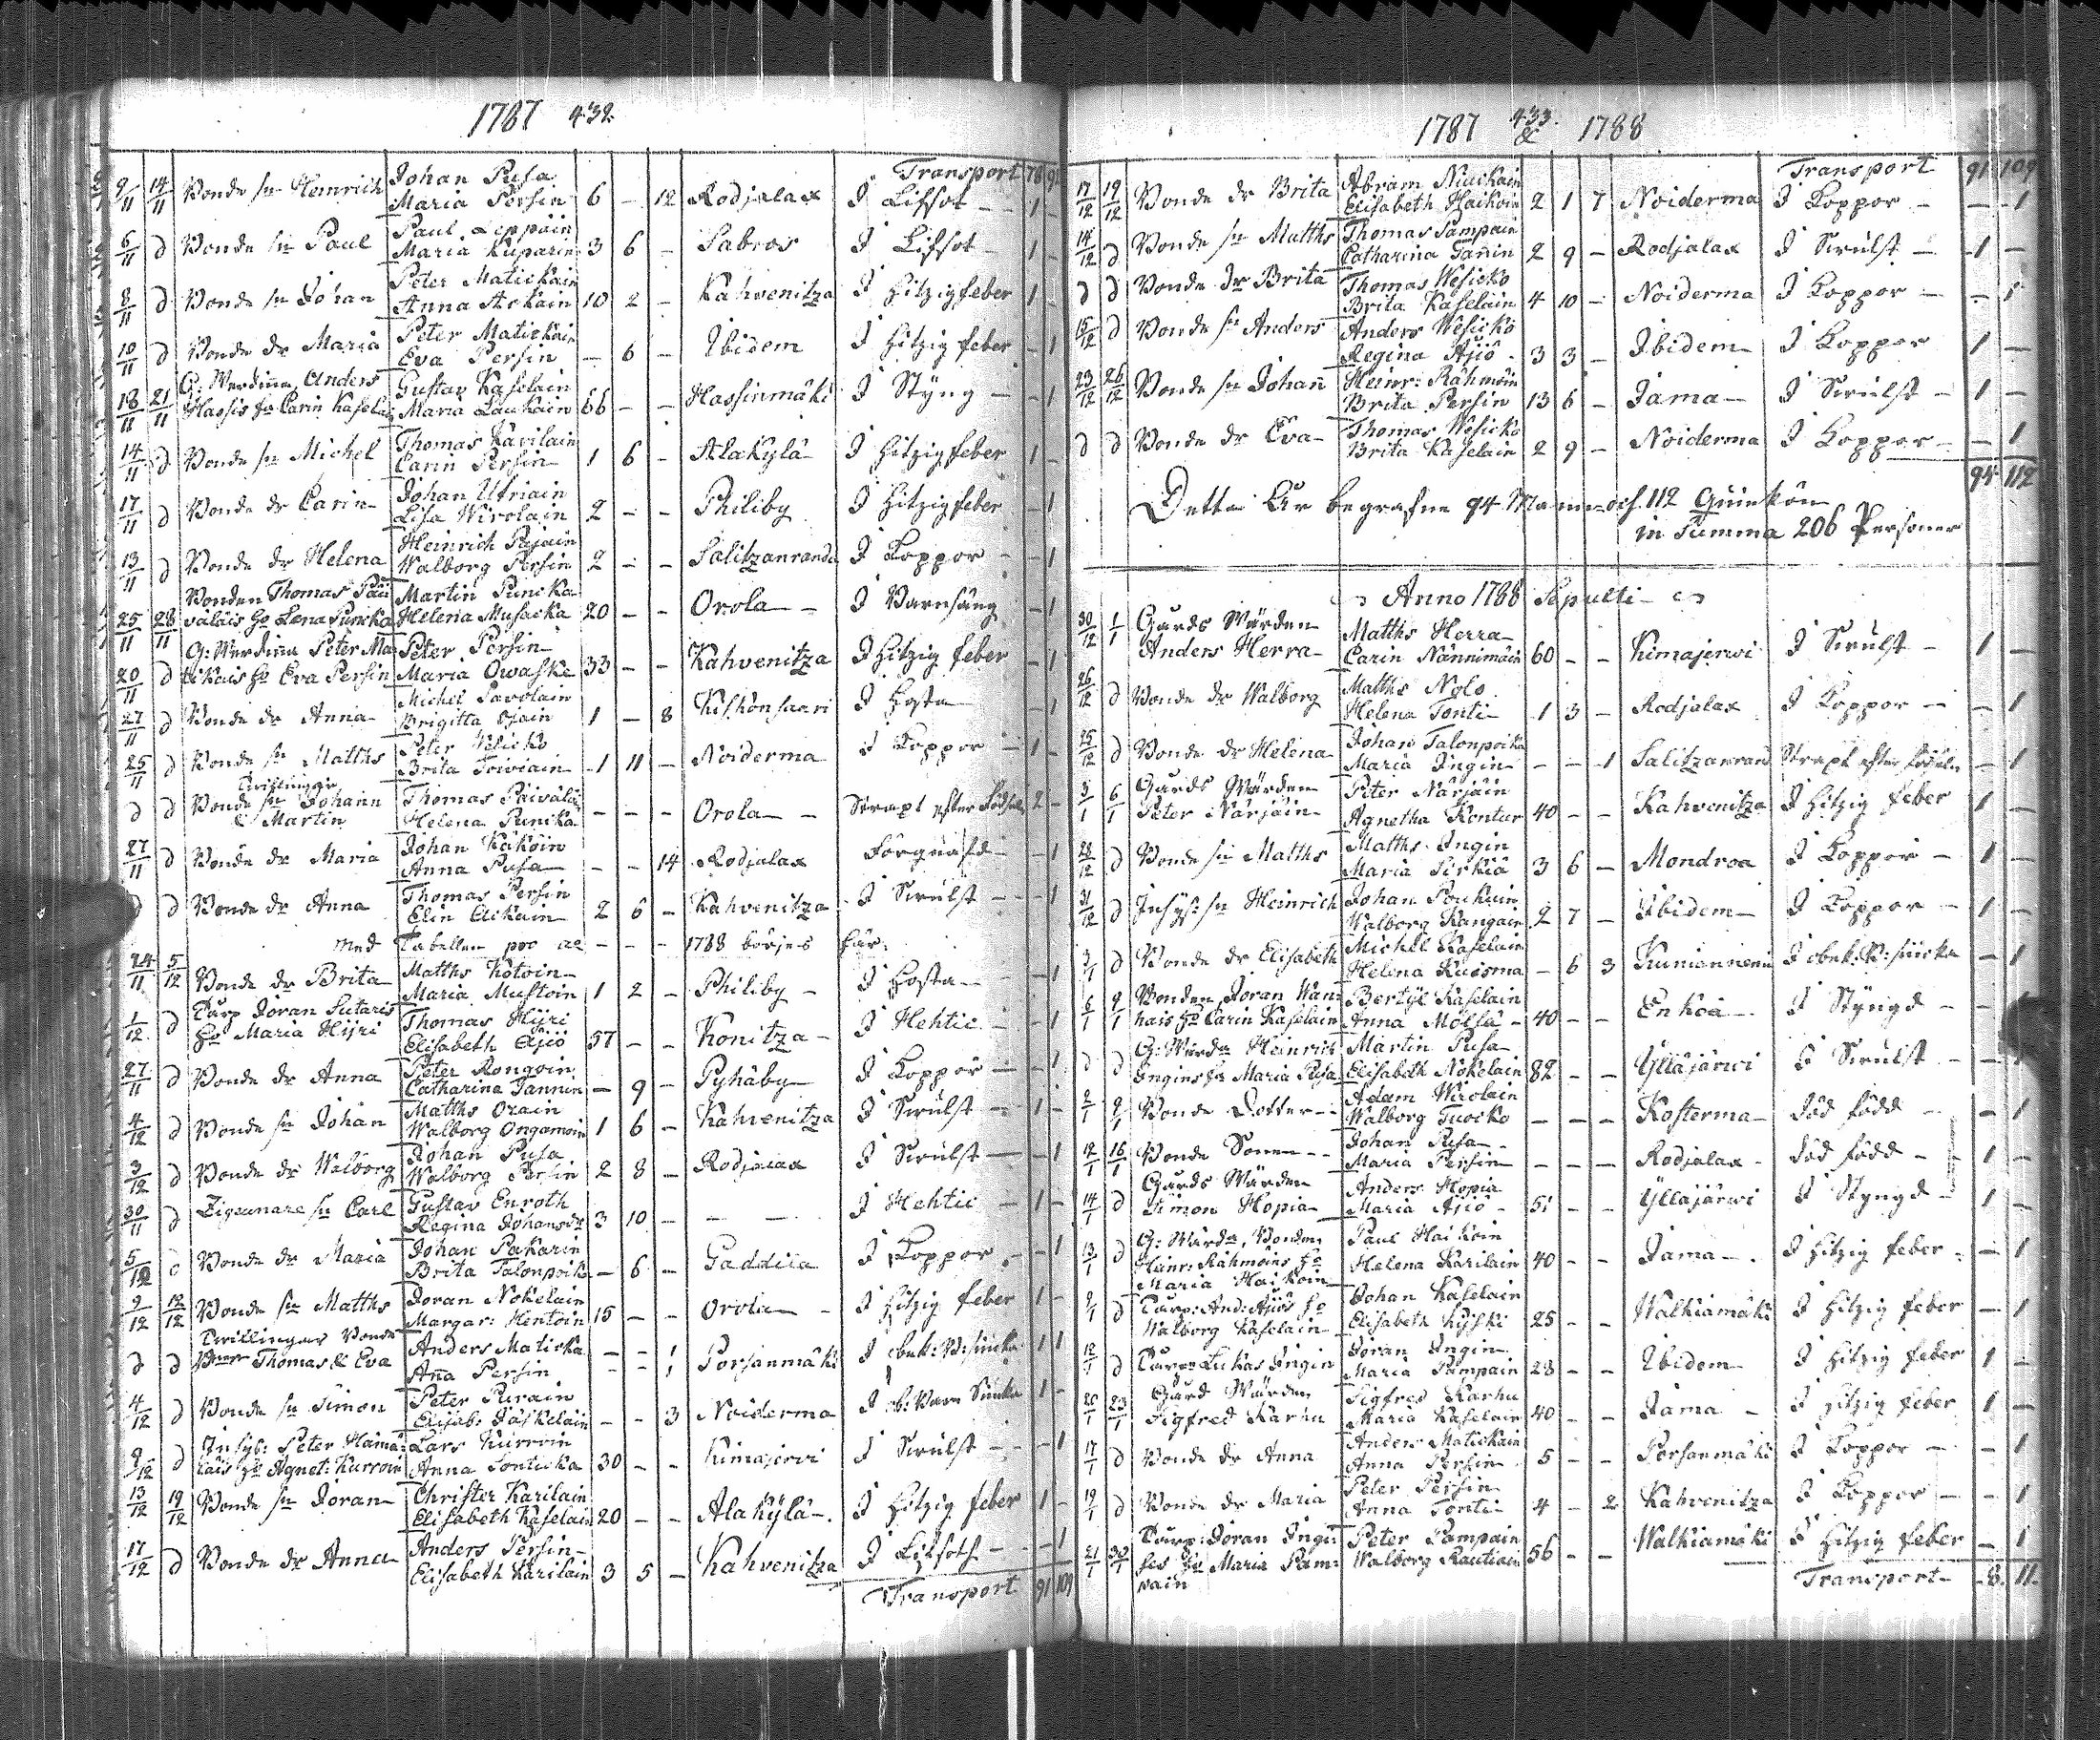 1787 432.
Transport 78
9/11 14/11 Bonde sn Heinrich Johan Pusa
Maria Persin 6 - 12 Rodjalax I Lifsot - 1 -
6/11 d Bonde sn Paul Paul Leppäin
Maria Kuparin 3 6 - Sabros I Lifsot - 1 -
8/11 d Bonde sn Johan Peter Matickain
Anna Askain 10 2 - Kahvenitza I Hitzigfeber 1 -
10/11 d Bonde dr Maria Peter Matickain
Eva Persin - 6 - Ibidem I Hitzig feber - 1
18/11 21/11 G: Werdinna Anders Gustav Kaselain
Hassis Carin Kasela Maria Laukain 66 - - Hassinmäki I Styng - - 1
14/11 d Bonde sn Michel Thomas Kavilain
Carin Persin 1 6 - Alakylä I Hitzigfeber 1 -
17/11 d Bonde dr Carin Johan Ufriain
Lisa Wirolain 2 - - Philiby I Hitzigfeber - 1
13/11 d Bonde dr Helena Heinrich Pajain
Walborg Persin 2 - - Salitzanranda I Koppor - - 1
Bonden Thomas Päi Martin Punicka
25/11 28/11 välais ho Lena Punicka Helena Musacka 20 - - Orola - I Barnsäng - 1
G: Werdinna Peter Ma Peter Persin
20/11 d tikais ho Eva Persin Maria Owaska 33 - - Kahvenitza I Hitzig feber - 1
27/11 d Bonde dr Anna Michel Savolain
Brigitta Orain 1 - 8 Kiskonsaari I Hosta - 1
25/11 d Bonde sn Matths Peter Wesicko
Brita Toiviain 1 11 - Noiderma I Koppor 1 -
Twillingar
d d Bonde sn Johann Thomas Päiväläi
& Martin Helena Punicka - - - Orola - Strapt efter födseln 2 -
27/11 d Bonde dr Maria Johan Käköin
Anna Pusa - - 14 Rodjalax Förqwafd - 1
d d Bonde dr Anna Thomas Persin
Elin Eickain 2 6 - Kahvenitza I Swulst - - 1
med Tabellen pro ao - - - 1788 börjes här.
24/11 5/12 Bonde dr Brita Matths Kotoin
Maria Mustoin 1 2 - Philiby - I Hosta - - 1
1/12 d Torp Joran Sutaris Thomas Hijri
ho Maria Hijri Elisabeth Äijiö 57 - - Konitza - I Hehtic - 1
27/11 d Bonde dr Anna Peter Rongoin
Catharina Tannin - 9 - Pyhäby I Koppor - 1
4/12 d Bonde sn Johan Matths Orain
Walborg Ongamoin 1 6 - Kahvenitza I Swulst - 1 -
3/12 d Bonde dr Walborg Johan Pusa
Walborg Persin 2 8 - Rodjalax I Swulst - - 1
30/11 d Zigeunare sn Carl Gustav Enroth
Regina Johansdr 3 10 - - - I Hehtic - 1 -
5/12 d Bonde dr Maria Johan Pakarin
Brita Talonpoik - 6 - Gaddila I Koppor - 1
9/12 12/12 Bonde sn Matths Joran Nokelain
Margar: Hentoin 15 - - Orola - I Hitzig feber 1 -
Twillingar Bonde
d d Thomas & Eva Anders Maticka - - 1
Anna Persin - - 1 Porsanmäki I obek: B: siucka 1 1
4/12 d Bonde sn Simon Peter Purain
Elisab: Jäskelain - - 3 Noiderma I ob: Barn Siucka 1 -
9/12 d Inhys: Peter Hämä Lars Kurroin
läis ho Agnet: Kurroin Anna Sonticka 30 - - Kimajerwi I Swulst - - 1
13/12 19/12 Bonde sn Joran Christer Karilain
Elisabeth Kaselain 20 - - Alakylä - I Hitzig feber 1 -
17/12 d Bonde dr Anna Anders Persin
Elisabeth Karilain 3 5 - Kahvenitza I Lifsoth - - 1
Transport 91 109
1787 433. & 1788
Transport 91 109
17/12 19/12 Bonde dr Brita Abram Niuckain
Elisabeth Haikoin 2 1 7 Noiderma I Koppor - - 1
14/12 d Bonde sn Matths Thomas Pampain
Catharina Tanin 2 9 - Rodjalax I Swulst - 1 -
d d Bonde dr Brita Thomas Wesicko
Brita Kaselain 4 10 - Noiderma I Koppor - - 1
15/12 d Bonde sn Anders Anders Wesicko
Regina Äjiö - 3 3 - Ibidem I Koppor 1 -
23/12 26/12 Bonde sn Johan Heinr: Rähmöin
Brita Persin 13 6 - Jama - I Swulst - 1 -
d d Bonde dr Eva - Thomas Wesicko
Brita Kaselain 2 9 - Noiderma I Koppor - - 1
94 112
Detta År begrafne 94 Mann- och 112 Quinkön
in Summa 206 Personer
Anno 1788 Sepulti
30/12 1/1 Gårds Wärden Matths Herra
Anders Herra Carin Nännimäin 60 - - Kimajerwi I Swulst - 1 -
26/12 d Bonde dr Walborg Matths Nolo
Helena Tonti 1 3 - Rodjalax I Koppor - - 1
25/12 d Bonde dr Helena Johan Talonpoika
Maria Ingin - - 1 Salitzanrand Strapt efter födseln - 1
3/1 6/1 Gårds Wärden Peter Närjäin
Peter Närjäin Agnetha Kontur 40 - - Kahvenitza I Hitzig feber 1 -
28/12 d Bonde sn Matths Matths Ingin
Maria Sirkiä 3 6 - Mondroa I Koppor - 1 -
31/12 d Inhys: sn Heinrich Johan Poukain
Walborg Kangain 2 7 - Ibidem I Koppor - 1 -
3/1 d Bonde dr Elisabeth Michel Kaselain
Helena Kuisma - 6 3 Kuniannemi I obek: B: siucka - 1
6/1 9/1 Bonden Joran Wan Bertil Kaselain
hais ho Carin Kaselain Anna Mölsä - 40 - - Enkoa - I Styngd - - 1
d d G: Wärda Heinrich Martin Pusa
Ingins Maria Pusa Elisabeth Nokelain 82 - - Ylläjärwi I Swulst - - 1
2/1 9/1 Bonde Dotter - - Adam Wirolain
Walborg Tuocko - - - Kosterma död född - - 1
12/1 16/1 Bonde Sonen - - Johan Pusa -
Maria Persin - - - Rodjalax - död född - 1 -
14/1 d Gårds Wärden Anders Hopia
Simon Hopia Maria Äjiö - 51 - - Ylläjärwi I Styngd - 1 -
13/1 d G: Wärda, Bonden Paul Haikoin
Heinr: Rähmöins ho Helena Karilain 40 - - Jama - I Hitzig feber - 1
Maria Haikoin
9/1 d Torp: And: Äjiös ho Johan Kaselain
Walborg Kaselain Elisabeth Kijski 25 - - Walkiamäki I Hitzig feber - 1
12/1 d Torp: Lukas Ingin Joran Ingin
Maria Pampain 28 - - Ibidem I Hitzig feber 1 -
20/1 23/1 Gård Wärden Sigfred Karhu
Sigfred Karhu Maria Kaselain 40 - - Jama - I Hitzig feber 1 -
17/1 d Bonde dr Anna Anders Matickain
Anna Persin 5 - - Porsanmäki I Koppor - - 1
19/1 d Bonde dr Maria Peter Persin
Anna Tonti 4 - 2 Kahvenitza I Koppor - - 1
21/1 30/1 Torp: Joran Ingi Peter Pampain
Maria Pam- Walborg Rautiain 56 - - Walkiamäki I Hitzig feber - 1
pain
Transport - 8. 11.